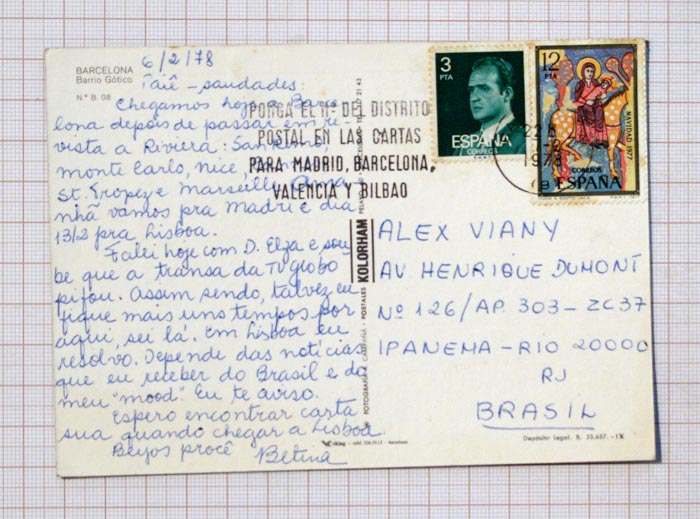 BARCELONA
Barrio Gótico
N.º B. 08
6/2/78
Taiê - saudades:
Chegamos hoje a Barce
lona depois de passar em re-
vista a Riviera: San Remo,
monte Carlo, nice,
St. Tropez e Marseille. Ama
nhã vamos pra Madri e dia
13/2 pra Lisboa.
Falei hoje com D. Elza e sou
be que a transa da TV globo
pifou. Assim sendo, talvez eu
fique mais uns tempos por
aqui, sei lá. Em Lisboa eu
resolvo. Depende das notícias
que eu receber do Brasil e do
meu "mood". Eu te aviso.
Espero encontrar carta
sua quando chegar a Lisboa.
Beijos procê Betina
PONGA EL N.º DEL DISTRITO
POSTAL EN LAS CARTAS
PARA MADRID, BARCELONA,
VALENCIA Y BILBAO
3
PTA
ESPAÑA
CORREOS
12
PTA
NAVIDAD 1977
CORREOS
ESPAÑA
1978
KOLORHAM
FOTOGRAFIA A. CAMPAÑÁ - POSTALES
ALEX VIANY
AV HENRIQUE DUMONT
Nº 126/AP. 303 - ZC37
IPANEMA - RIO 20000
RJ
BRASIL
Viking
Barcelona
Depósito legal. B. 33.657. - IX